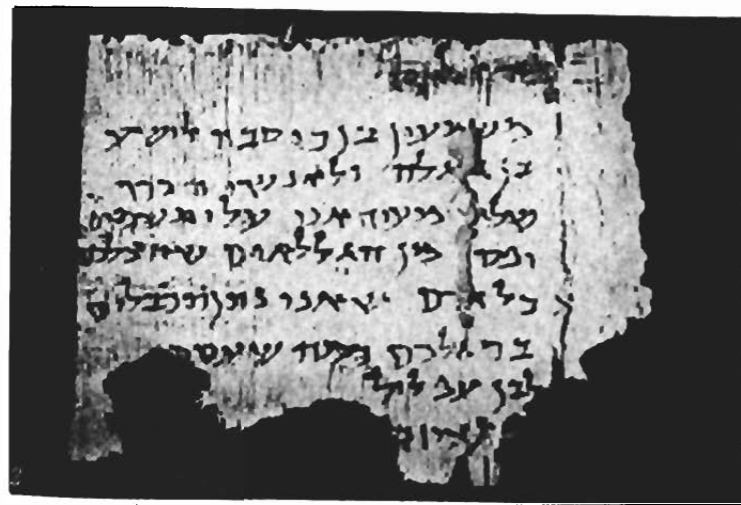 משמעון בן כוסבה לישע
בן גלגלה ולאנשי הכרך
שלום מעיד אני עלי תשמים
יפס מן הגללאים שאצלכם
כל אדם שאני נתן תכבלים
ברגלכם כמה שעסת
לבן עפלול